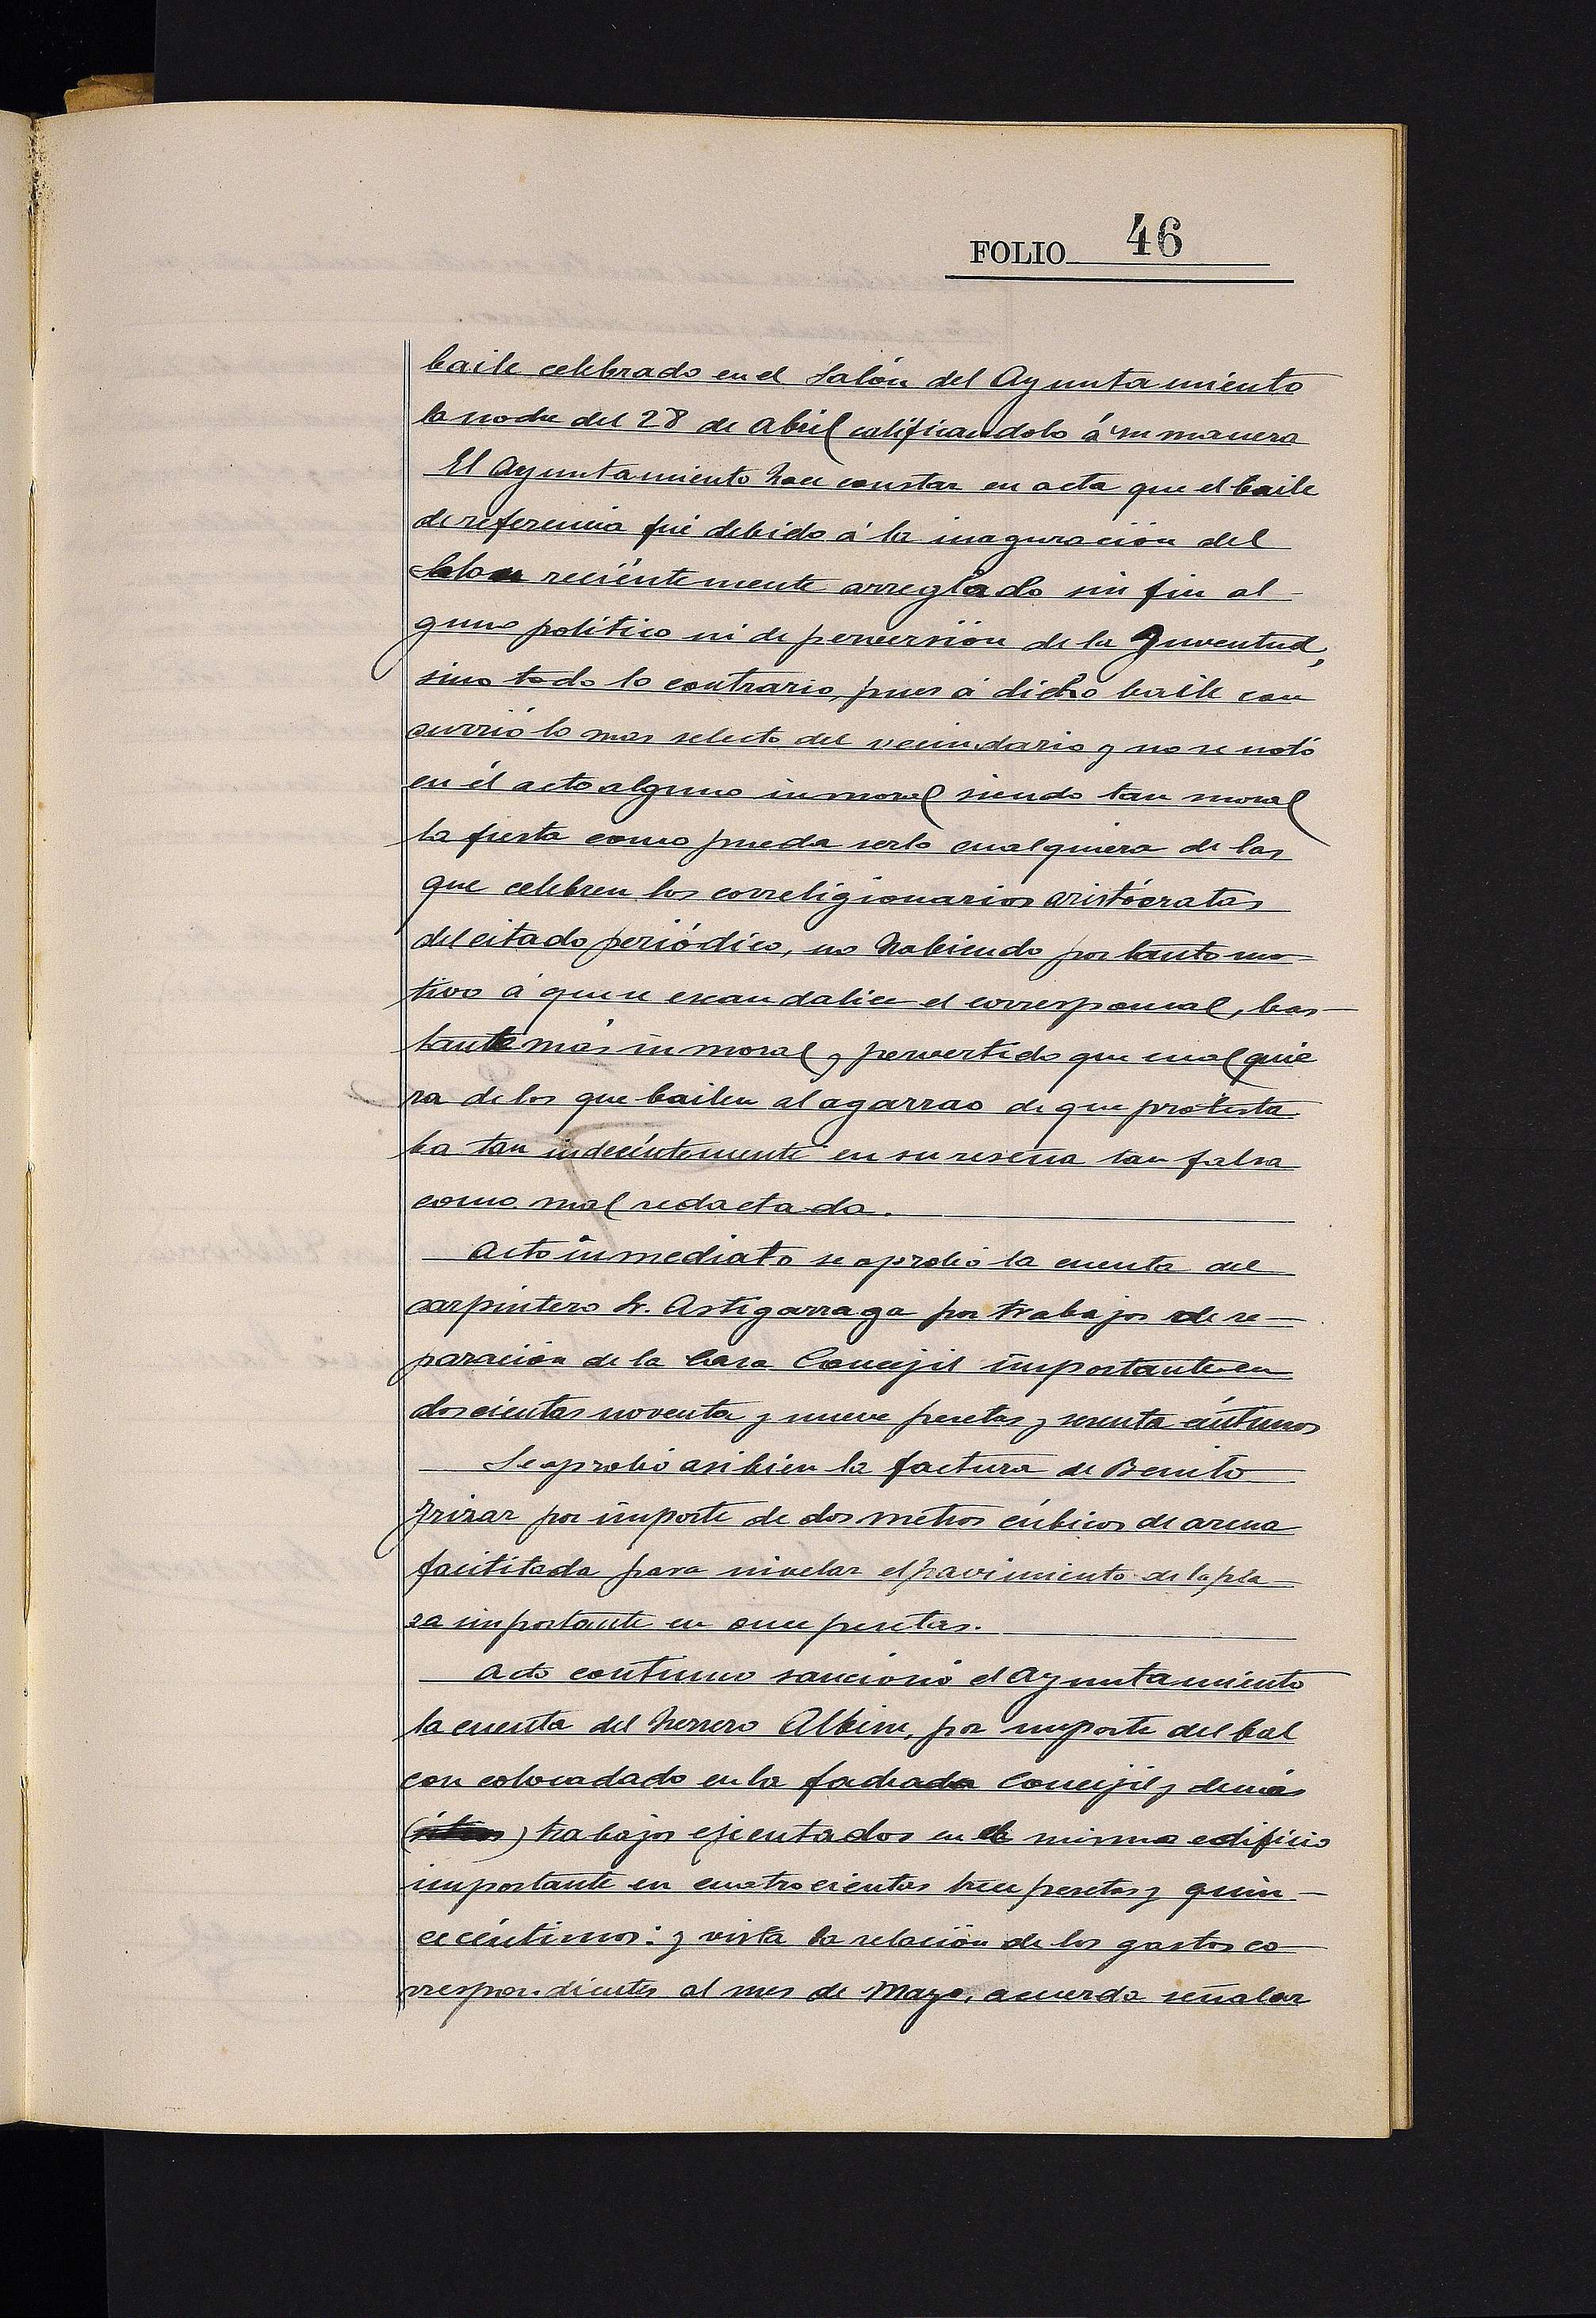 FOLIO 46
baile celebrado en el Salón del Ayuntamiento
la noche del 28 de Abril calificandolo á su manera
El Ayuntamiento hace constar en acta que el baile
de referencia fué debido á la inaguración del
Salon recientemente arreglado sin fin al-
guno politico ni de perversión de la Juventud,
sino todo lo contrario, pues á dicho baile con
currió lo mas selecto del vecindario y no se notó
en él acto alguno inmoral siendo tan moral
la fiesta como pueda serlo cualquiera de las
que celebren los correligionarios aristócratas
del citado periódico, no habiendo por tanto mo-
tivo á que se escandalice el corresponsal, bas-
tante más inmoral y pervertido que cualquie
ra de los que bailen al agarrao de que protesta
ba tan indecéntemente en su reseña tan falsa
como mal redactada.
Acto inmediato se aprobó la cuenta del
carpintero Sr. Astigarraga por trabajos de re-
paración de la Casa Concejil importante en
doscientas noventa y nueve pesetas y sesenta céntimos
Se aprobó asibien la factura de Benito
Yrizar por importe de dos metros cúbicos de arena
facilitada para nivelar el pavimiento de la pla-
za importante en once pesetas.
Acto continuo sancionó el Ayuntamiento
la cuenta del herrero Albisu, por importe del bal
con colocadado en la fachada Concejil y demás
trabajos ejecutados en el mismo edificio
importante en cuatrocientas trece pesetas y quin-
ce céntimos: y vista la relación de los gastos co-
rrespondientes al mes de Mayo, acuerda señalar